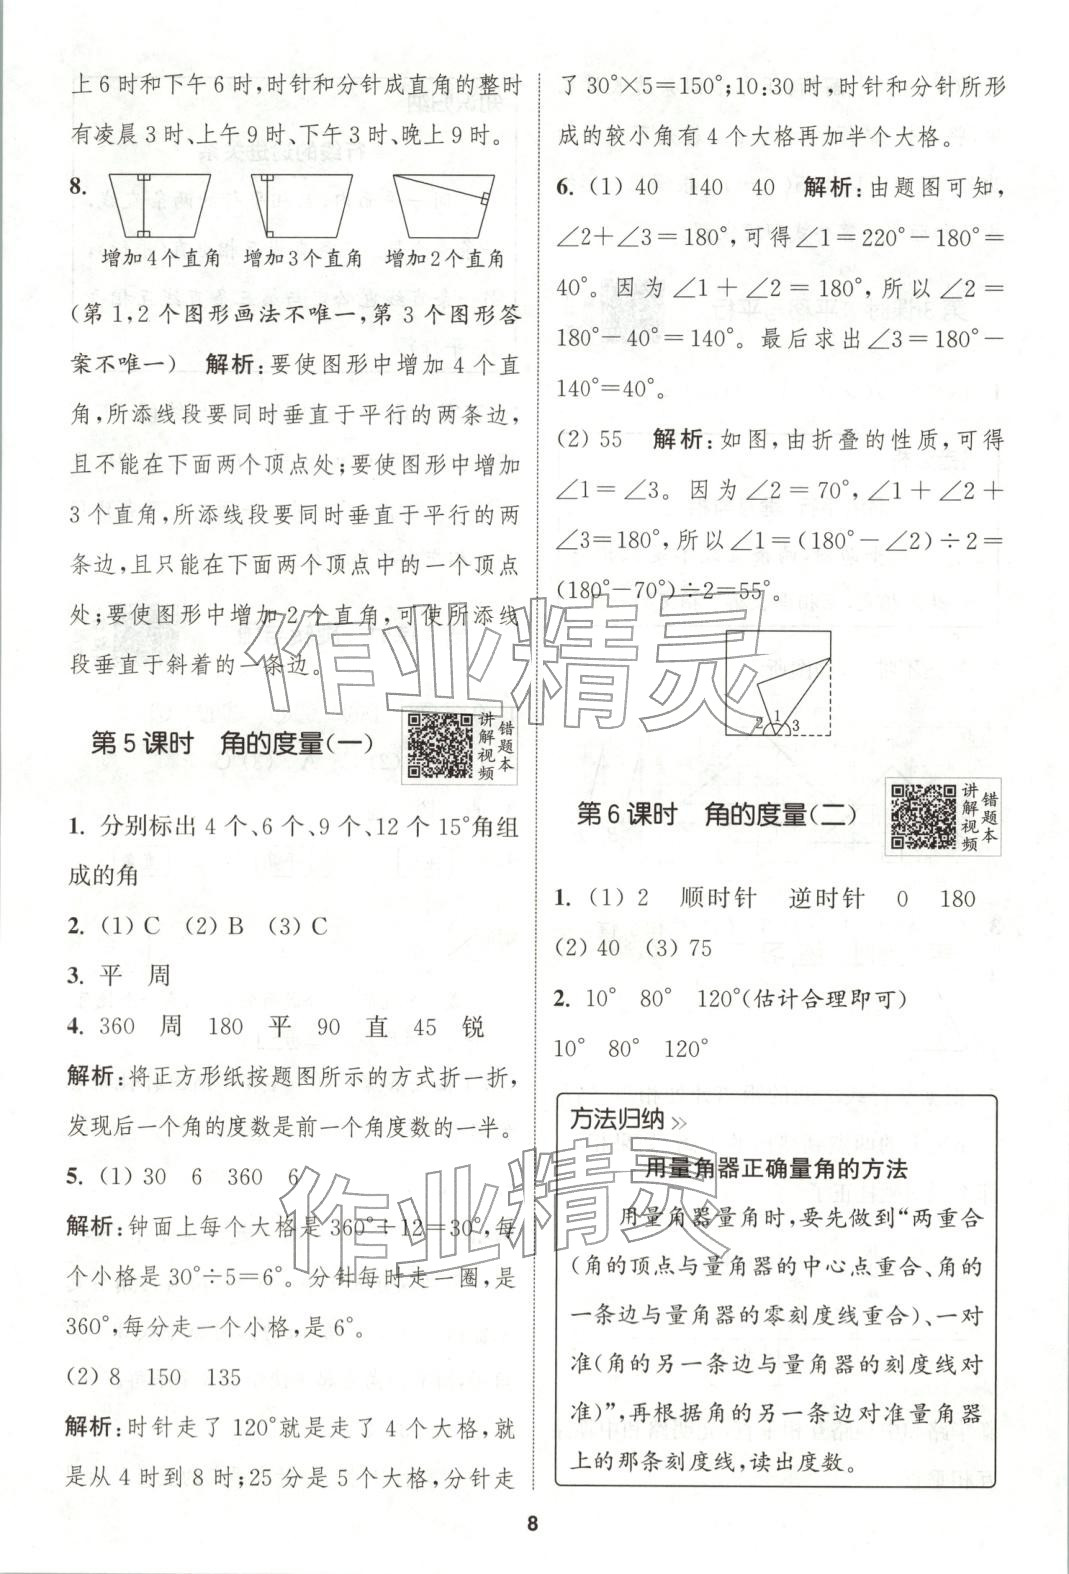 上6时和下午6时,时针和分针成直角的整时
有凌晨3时、上午9时、下午3时、晚上9时。
8.
增加4个直角 增加3个直角 增加2个直角
(第1,2个图形画法不唯一,第3个图形答
案不唯一) 解析:要使图形中增加4个直
角,所添线段要同时垂直于平行的两条边,
且不能在下面两个顶点处;要使图形中增加
3个直角,所添线段要同时垂直于平行的两
条边,且只能在下面两个顶点中的一个顶点
处;要使图形中增加2个直角,可使所添线
段垂直于斜着的一条边。
第5课时 角的度量(一)
讲解视频
错题本
1. 分别标出4个、6个、9个、12个15°角组
成的角
2. (1) C (2) B (3) C
3. 平 周
4. 360 周 180 平 90 直 45 锐
解析:将正方形纸按题图所示的方式折一折,
发现后一个角的度数是前一个角度数的一半。
5. (1) 30 6 360 6
解析:钟面上每个大格是360°÷12=30°,每
个小格是30°÷5=6°。分针每时走一圈,是
360°,每分走一个小格,是6°。
(2) 8 150 135
解析:时针走了120°就是走了4个大格,就
是从4时到8时;25分是5个大格,分针走
了30°×5=150°;10:30时,时针和分针所形
成的较小角有4个大格再加半个大格。
6. (1) 40 140 40 解析:由题图可知,
∠2+∠3=180°,可得∠1=220°-180°=
40°。因为∠1+∠2=180°,所以∠2=
180°-40°=140°。最后求出∠3=180°-
140°=40°。
(2) 55 解析:如图,由折叠的性质,可得
∠1=∠3。因为∠2=70°,∠1+∠2+
∠3=180°,所以∠1=(180°-∠2)÷2=
(180°-70°)÷2=55°。
2 1 3
第6课时 角的度量(二)
讲解视频
错题本
1. (1) 2 顺时针 逆时针 0 180
(2) 40 (3) 75
2. 10° 80° 120°(估计合理即可)
10° 80° 120°
方法归纳》
用量角器正确量角的方法
用量角器量角时,要先做到“两重合
(角的顶点与量角器的中心点重合、角的
一条边与量角器的零刻度线重合)、一对
准(角的另一条边与量角器的刻度线对
准)”,再根据角的另一条边对准量角器
上的那条刻度线,读出度数。
8
作业精灵
作业精灵